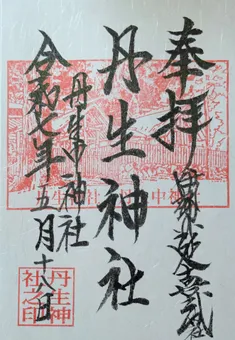 奉拝
延喜式
丹生神社
丹生中神社
令和七年五月十八日
丹生神
社之印